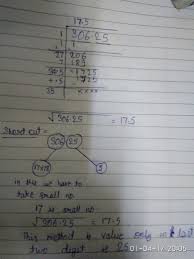 17.5
1 306.25
1 1
27 206
7 189
345 1725
+5 1725
35 ××××
√306.25 = 17.5
Short cut =
306 25
17×18 5
in this we have to
take small no
17 is small no
√306.25 = 17.5
This method is value only in last
two digit is 25
01-04-17 20:05